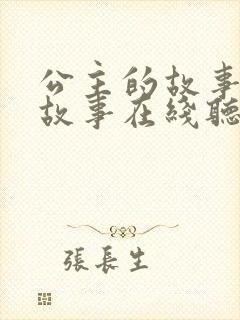 公主的故事
故事在綫聽
張長生